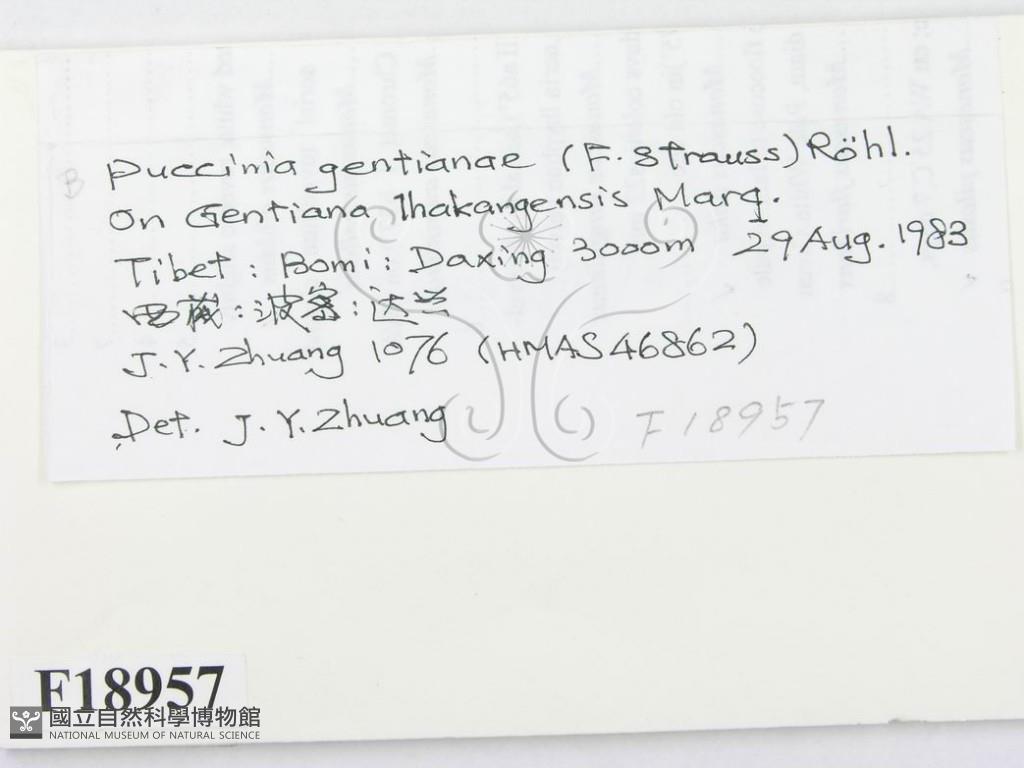 Puccinia gentianae (F. Strauss) Röhl.
On Gentiana lhakangensis Marq.
Tibet: Bomi: Daxing 3000m 29 Aug. 1983
西藏:波密:达兴
J.Y. Zhuang 1076 (HMAS 46862)
Det. J.Y. Zhuang
F18957
F18957
國立自然科學博物館
NATIONAL MUSEUM OF NATURAL SCIENCE